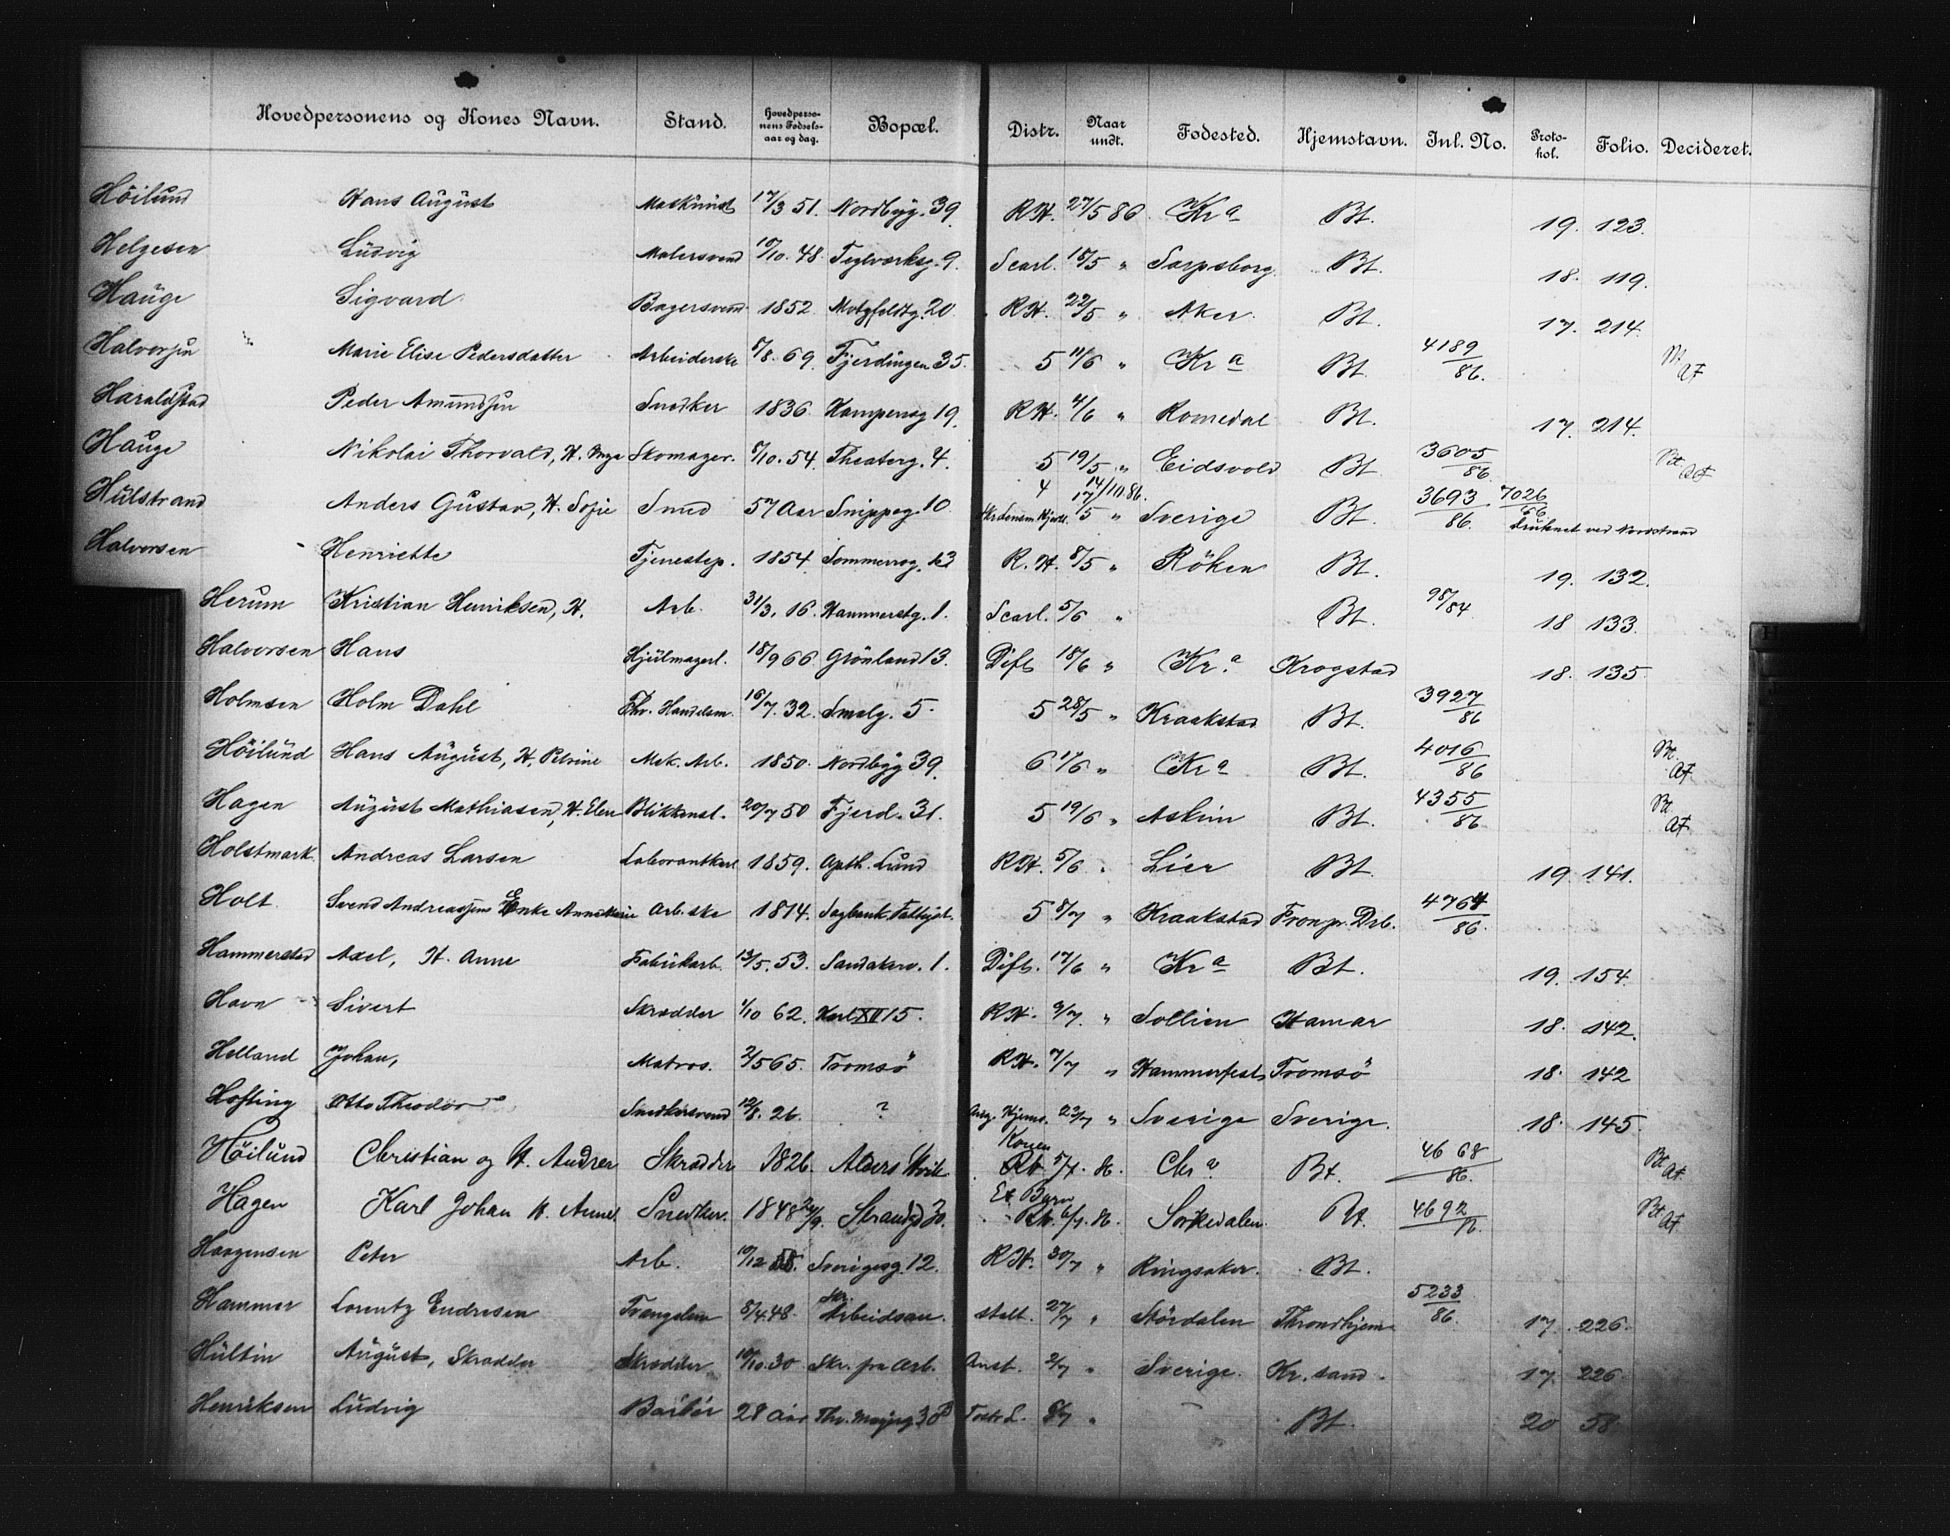 Hovedpersonens og Kones Navn. Stand. Hovedperso-nens Fødsels-aar og dag. Bopæl. Distr. Naar undt. Fødested. Hjemstavn. Inl. No. Proto-kol. Folio. Decideret.
Höilund Hans August Maskinist 17/3 51. Nordbyg. 39. RH. 27/5 86 Kra Bt. 19. 123.
Helgesen Ludvig Malersvend 10/10. 48. Teglværksg. 9. Scarl. 15/5 " Sarpsborg. Bt. 18. 119.
Hauge Sigvard Bagersvend 1852. Motzfeldtg. 20. RH. 22/5 " Aker. Bt. 17. 214.
Halvorsen Marie Elise Pedersdatter Arbeiderske 5/8. 69. Fjerdingen 35. 5 11/6 " Kra Bt. 4189/86. Bt. AF
Haraldstad Peder Amundsen Snedker 1836. Kampensg 19. RH. 4/6 " Romedal Bt. 17. 214.
Hauge Nikolai Thorvald, H. Skomager. 5/10. 54. Theaterg. 4. 5 19/5 " Eidsvold Bt. 3605/86 Bt. AF
4 14/10.86.
Hulstrand Anders Gustav, H. Sofie Smed 57 Aar Snippeg. 10 17/5 " Sverige Bt. 3693/86. 7026/86 Druknet ved Nordstrand
Halvorsen Henriette Tjenestep. 1854. Sommerrog. 13 R.H. 8/5 " Röken Bt. 19. 132.
Herum Kristian Henriksen, H. Arb. 31/3. 16. Hammerstg. 1. Scarl. 5/6 " Bt. 98/84 18 133.
Halvorsen Hans Hjulmagerl. 18/9 66 Grönland 13. Dift. 18/6 " Kr.a Krogstad 18. 135.
Holmsen Holm Dahl Fhv. Handelsm. 16/7. 32. Smalg. 5. 5 28/5 " Kraakstad Bt. 3927/86
Höilund Hans August, H. Petrine Mek. Arb. 1850. Nordbyg 39. 6 17/6 " Kra Bt. 4016/86 Bt. AF
Hagen August Mathiasen, H. Elen Blikkensl. 20/7 50 Fjerd. 31. 5 19/6 " Askim Bt. 4355/86 Bt. AF
Holstmark. Andreas Larsen Laborantkarl 1859. Apth. Lund RH. 5/6 " Lier Bt. 19. 141.
Holt. Svend Andreassens Enke Anne Marie Arb.ske 1814. Sagbank. 5 8/7 " Kraakstad Frogn pr. Drb. 4764/86.
Hammerstad Axel, H. Anne Fabrikarb. 13/5. 53. Sandakerv. 1. Dift. 17/6 " Kra Bt. 19. 154.
Havn Sivert Skrædder 1/10 62. Karl XII 15. RH. 9/7 " Sollien Hamar 18. 142.
Helland Johan, Matros. 2/5 65. Tromsö RH. 7/7 " Hammerfest Tromsö 18. 142
Hofling Otto Theodor Snedkersvend 12/8. 26. ? 23/7 " Sverige Sverige. 18. 145.
Höilund Christian og H. Andrea Skrædder 1826. Akers Hvile Konen RH. 5/7. 86. Chr.a Bt. 4668/86. Bt. AF
Hagen Karl Johan H. Anne Snedker. 1848 20/9. Strandg 30. Et Barn RH. 6/7. 86. Sörkedalen. Bt. 4692/86. Bt. AF
Haagensen Peter Arb. 10/12 58. Sverigesg. 12. RH. 30/7 " Ringsaker. Bt.
Hammer Lorentz Endresen Tvangslem 5/4. 48. Arbeidsan. stalt. 27/7 " Stördalen Throndhjem 5233/86. 17. 226.
Hultin August, Skrædder Skrædder 10/10. 30 Skr. fra Arb. Anst. 2/7 " Sverige. Kr. sand. 17. 226.
Henriksen Ludvig Barber 28 Aar " Bt. 20 58.